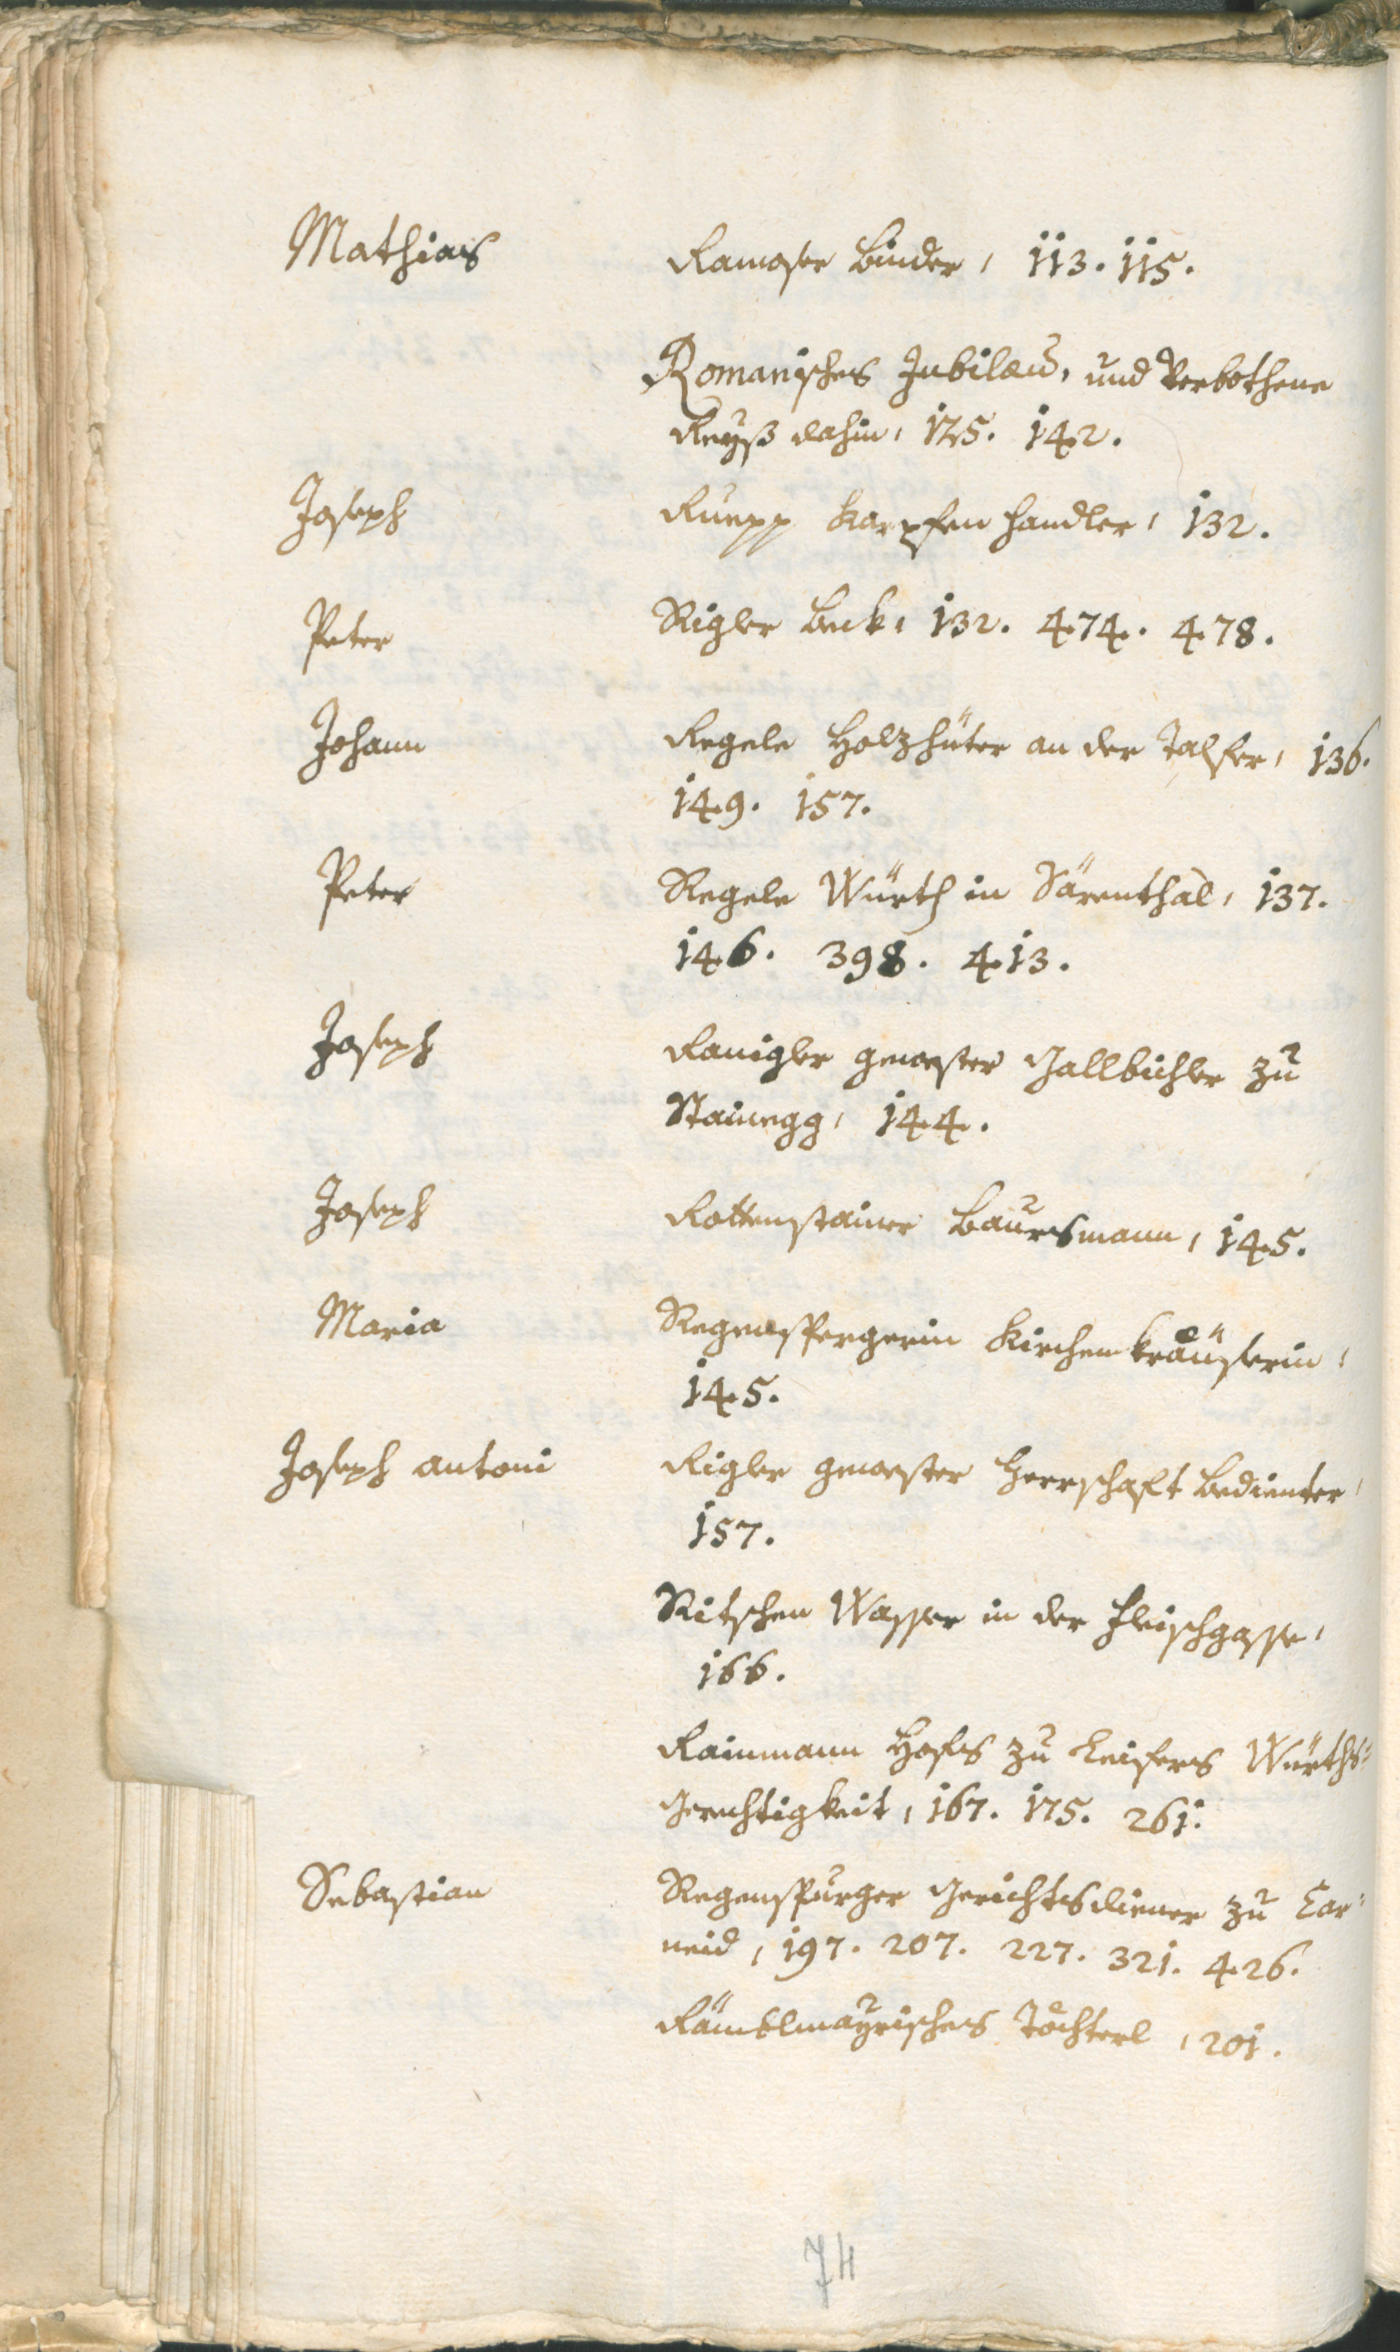 Mathias Ramoser Binder, 113. 115.
Romanisches Jubilæum, und Verbothene
Reyß dahin, 125. 142.
Joseph Ruepp Karpfenhandler, 132.
Peter Rigler Beck, 132. 474. 478.
Johann Regele Holzhüter an der Talfer, 136.
149. 157.
Peter Regele Würth in Särenthal, 137.
146. 398. 413.
Joseph Ranigler gewester Gallbichler zu
Stainegg, 144.
Joseph Rottenstainer Baursmann, 145.
Maria Regenspergerin Kirchen
145.
Joseph Antoni Rigler gewester Herrschaft Bedienter,
157.
Ritschen Wasser in der Fleischgasse,
166.
Rainmann Hofs zu Leifers Würths=
Gerechtigkeit, 167. 175. 261.
Sebastian Regenspurger Gerichtsdiener zu Car=
neid, 197. 207. 227. 321. 426.
Rämblmayrisches Töchterl, 201.
74